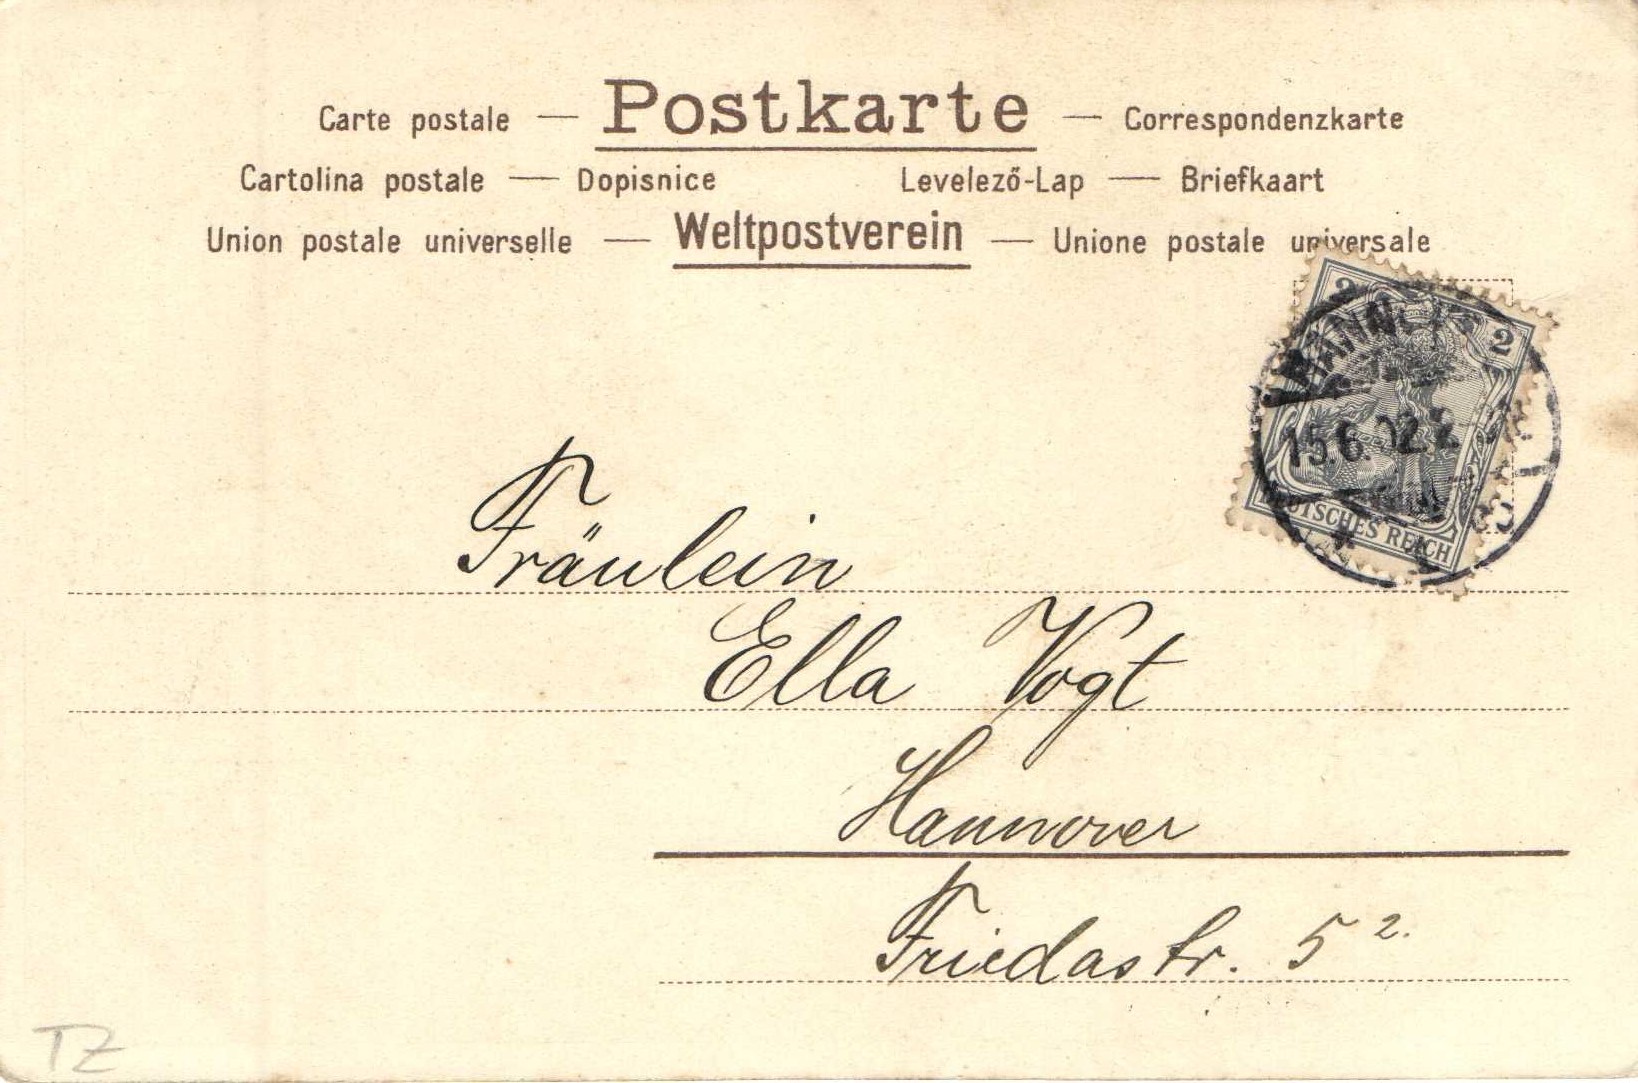 Carte postale — Postkarte — Correspondenzkarte
Cartolina postale — Dopisnice Levelező-Lap — Briefkaart
Union postale universelle — Weltpostverein — Unione postale universale
2 2
15.6.02.
DEUTSCHES REICH
Fräulein
Ella Vogt
Hannover
Friedastr. 5 2.
TZ